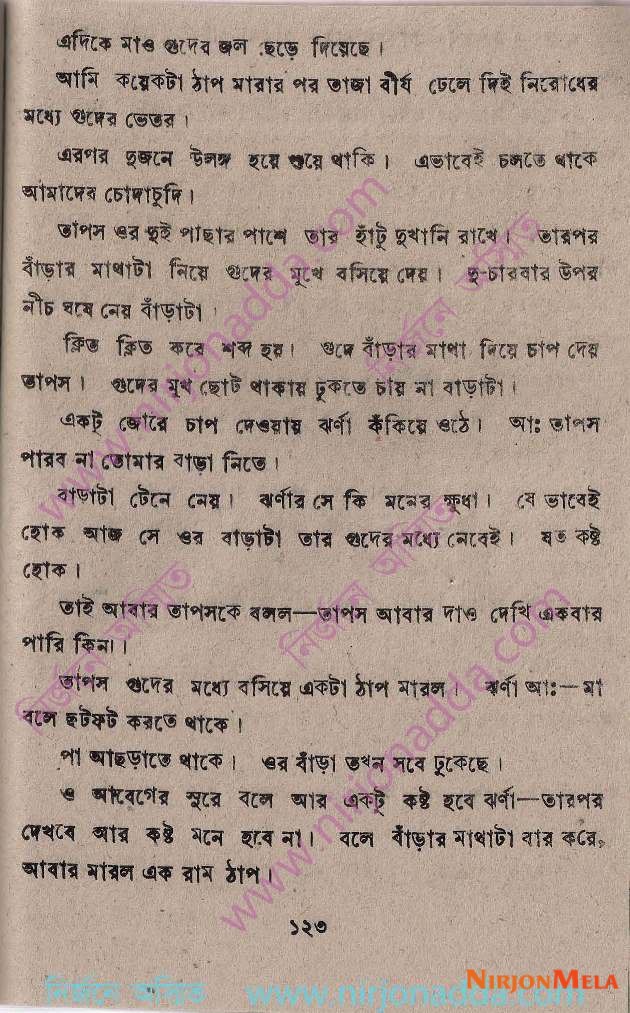 এদিকে মাও গুদের জল ছেড়ে দিয়েছে।
আমি কয়েকটা ঠাপ মারার পর তাজা বীর্য ঢেলে দিই নিরোধের
মধ্যে গুদের ভেতর।
এরপর দুজনে উলঙ্গ হয়ে শুয়ে থাকি। এভাবেই চলতে থাকে
আমাদের চোদাচুদি।
তাপস ওর দুই পাছার পাশে তার হাঁটু দুখানি রাখে। তারপর
বাঁড়ার মাথাটা নিয়ে গুদের মুখে বসিয়ে দেয়। দু-চারবার উপর
নীচ ঘষে নেয় বাঁড়াটা।
ক্লিত ক্লিত করে শব্দ হয়। গুদে বাঁড়ার মাথা নিয়ে চাপ দেয়
তাপস। গুদের মুখ ছোট থাকায় ঢুকতে চায় না বাড়াটা।
একটু জোরে চাপ দেওয়ায় ঝর্ণা কঁকিয়ে ওঠে। আঃ তাপস
পারব না তোমার বাড়া নিতে।
বাড়াটা টেনে নেয়। ঝর্ণার সে কি মনের ক্ষুধা। যে ভাবেই
হোক আজ সে ওর বাড়াটা তার গুদের মধ্যে নেবেই। যত কষ্ট
হোক।
তাই আবার তাপসকে বলল—তাপস আবার দাও দেখি একবার
পারি কিনা।
তাপস গুদের মধ্যে বসিয়ে একটা ঠাপ মারল। ঝর্ণা আঃ—মা
বলে ছটফট করতে থাকে।
পা আছড়াতে থাকে। ওর বাঁড়া তখন সবে ঢুকেছে।
ও আবেগের সুরে বলে আর একটু কষ্ট হবে ঝর্ণা—তারপর
দেখবে আর কষ্ট মনে হবে না। বলে বাঁড়ার মাথাটা বার করে,
আবার মারল এক রাম ঠাপ।
১২৩
নির্জনে অসিত www.nirjonadda.com
NIRJONMELA